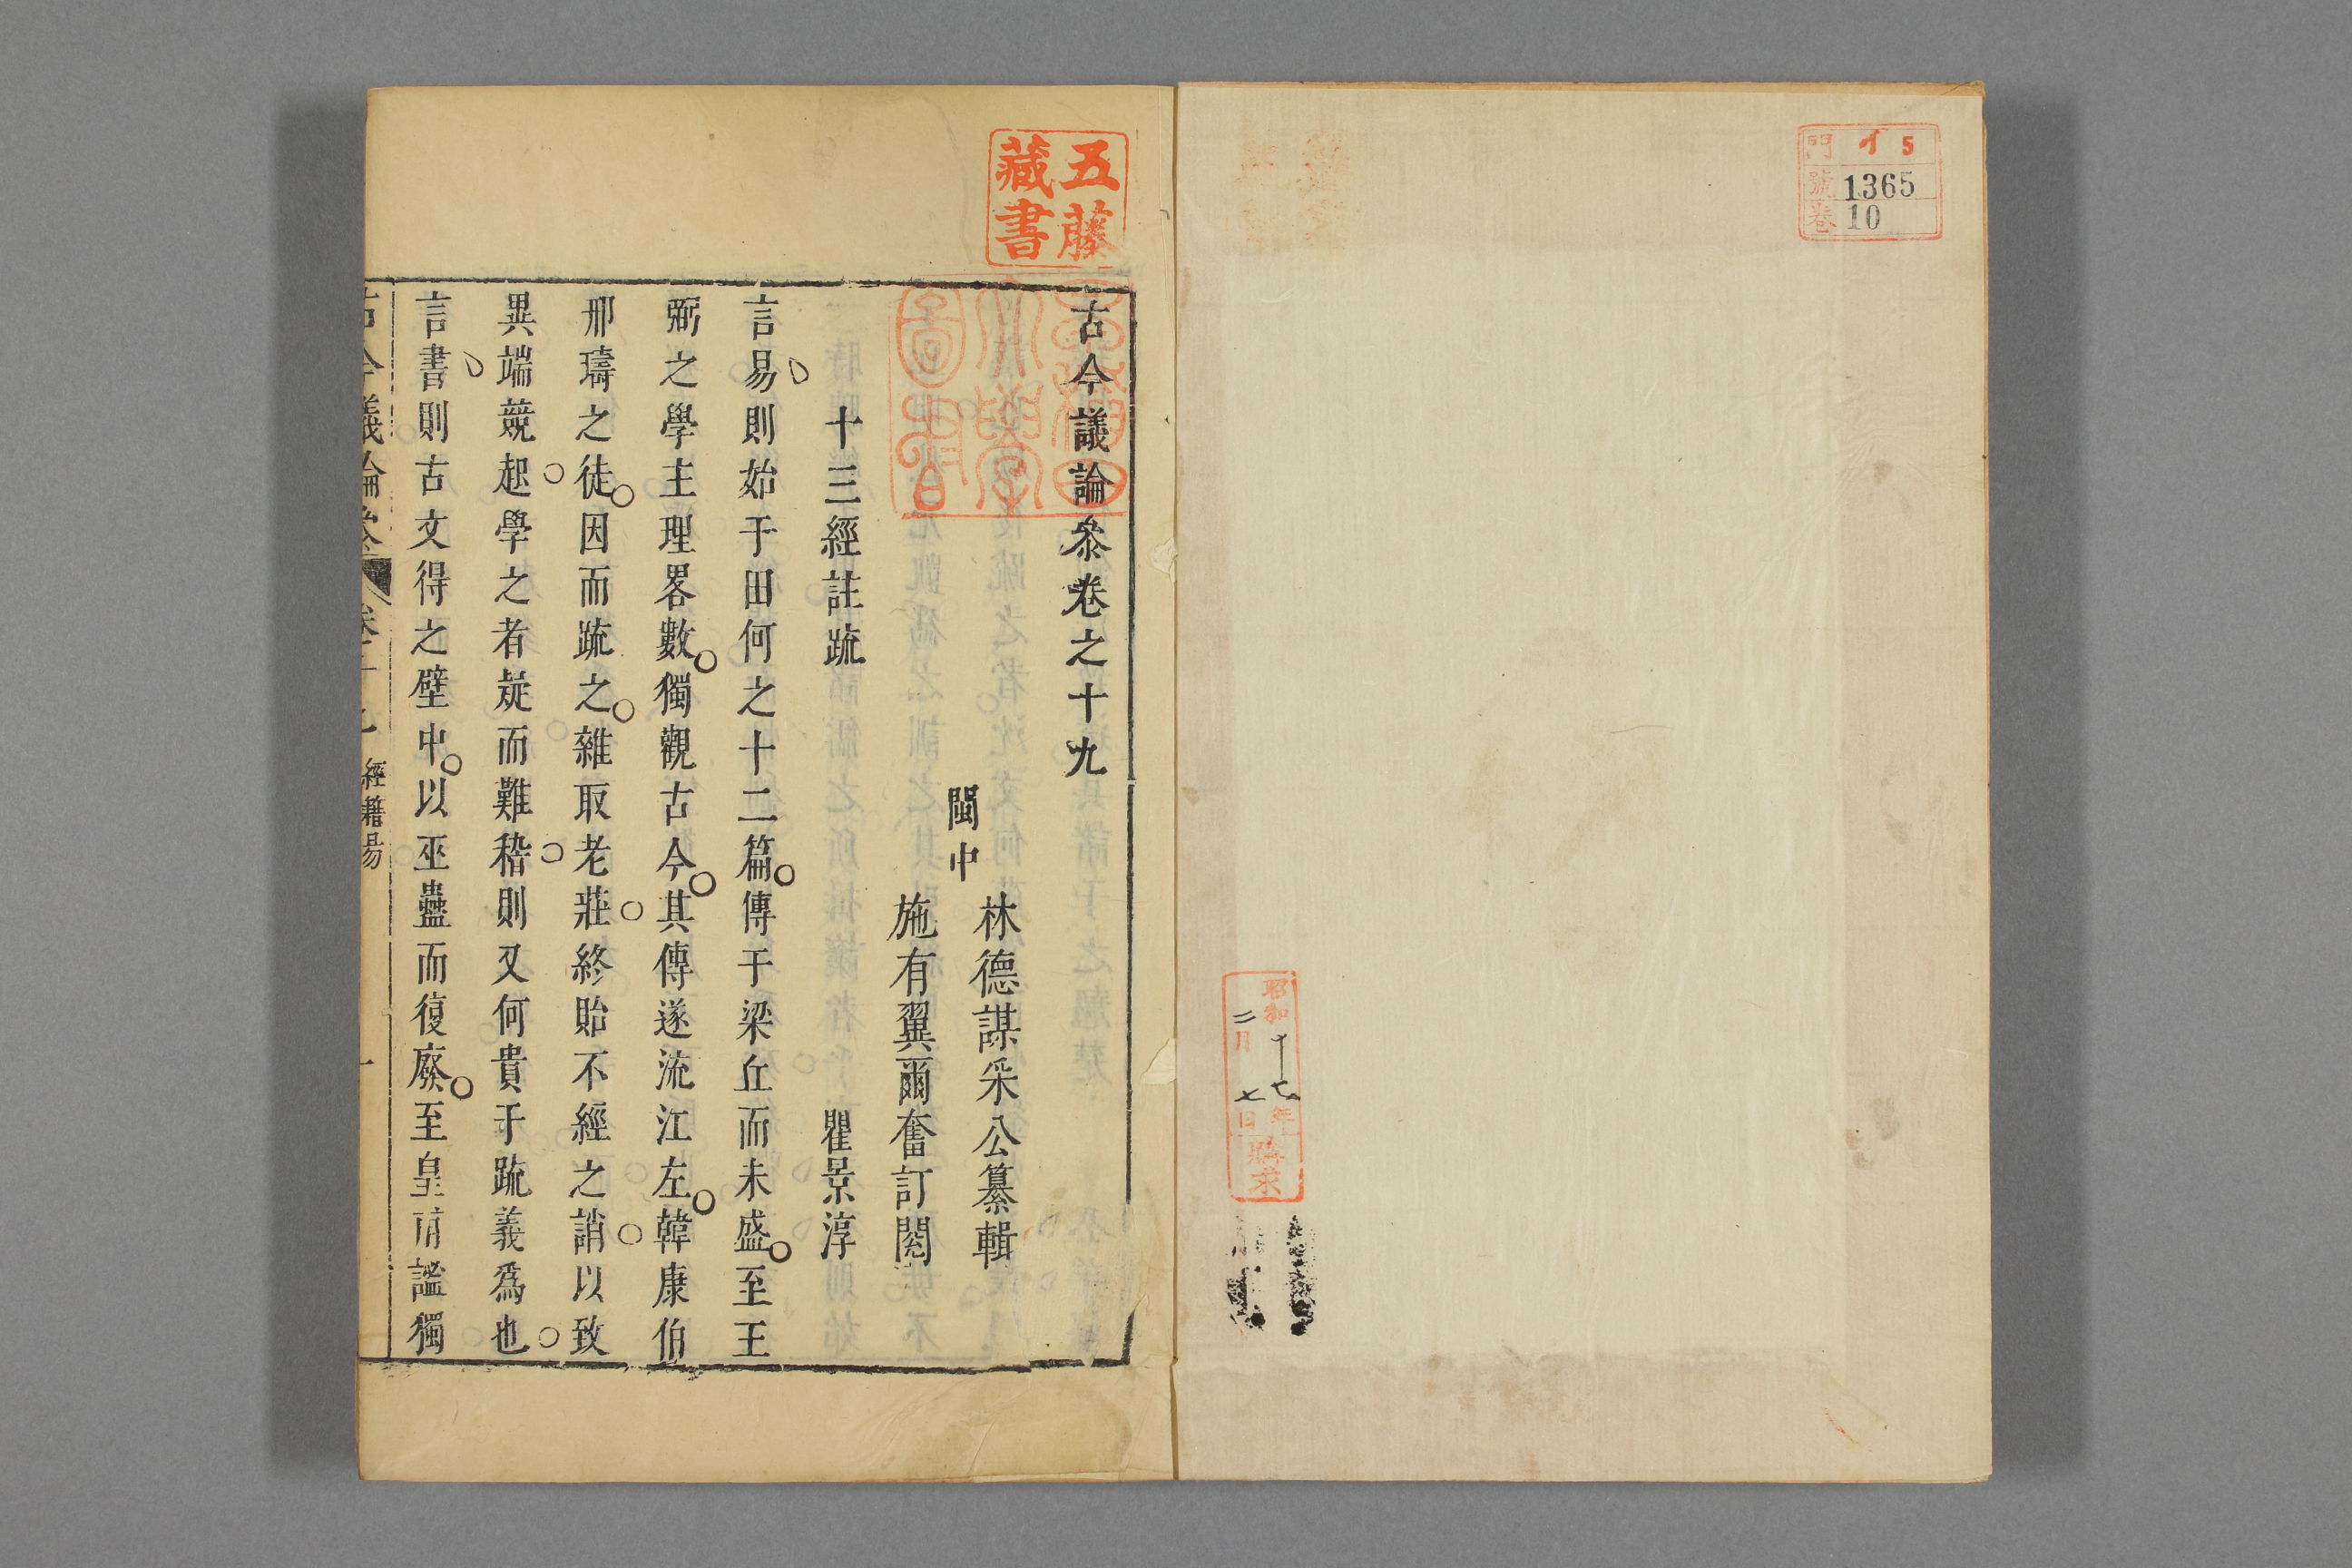 門 イ 5
號 1365
卷 10
昭和十七年
二月七日
購求
五藤
藏書
早稻田
大學
圖書
古今議論叅卷之十九
閩中
林德謀采公纂輯
施有翼爾奮訂閱
十三經註疏
瞿景淳
言易則始于田何之十二篇傳于梁丘而未盛至王
弼之學主理畧數獨觀古今其傳遂流江左韓康伯
邢璹之徒因而疏之雜取老莊終貽不經之誚以致
異端競起學之者疑而難稽則又何貴于疏義爲也
言書則古文得之壁中以巫蠱而復廢至皇甫謐獨
古今議論叅 卷十九 經籍 一